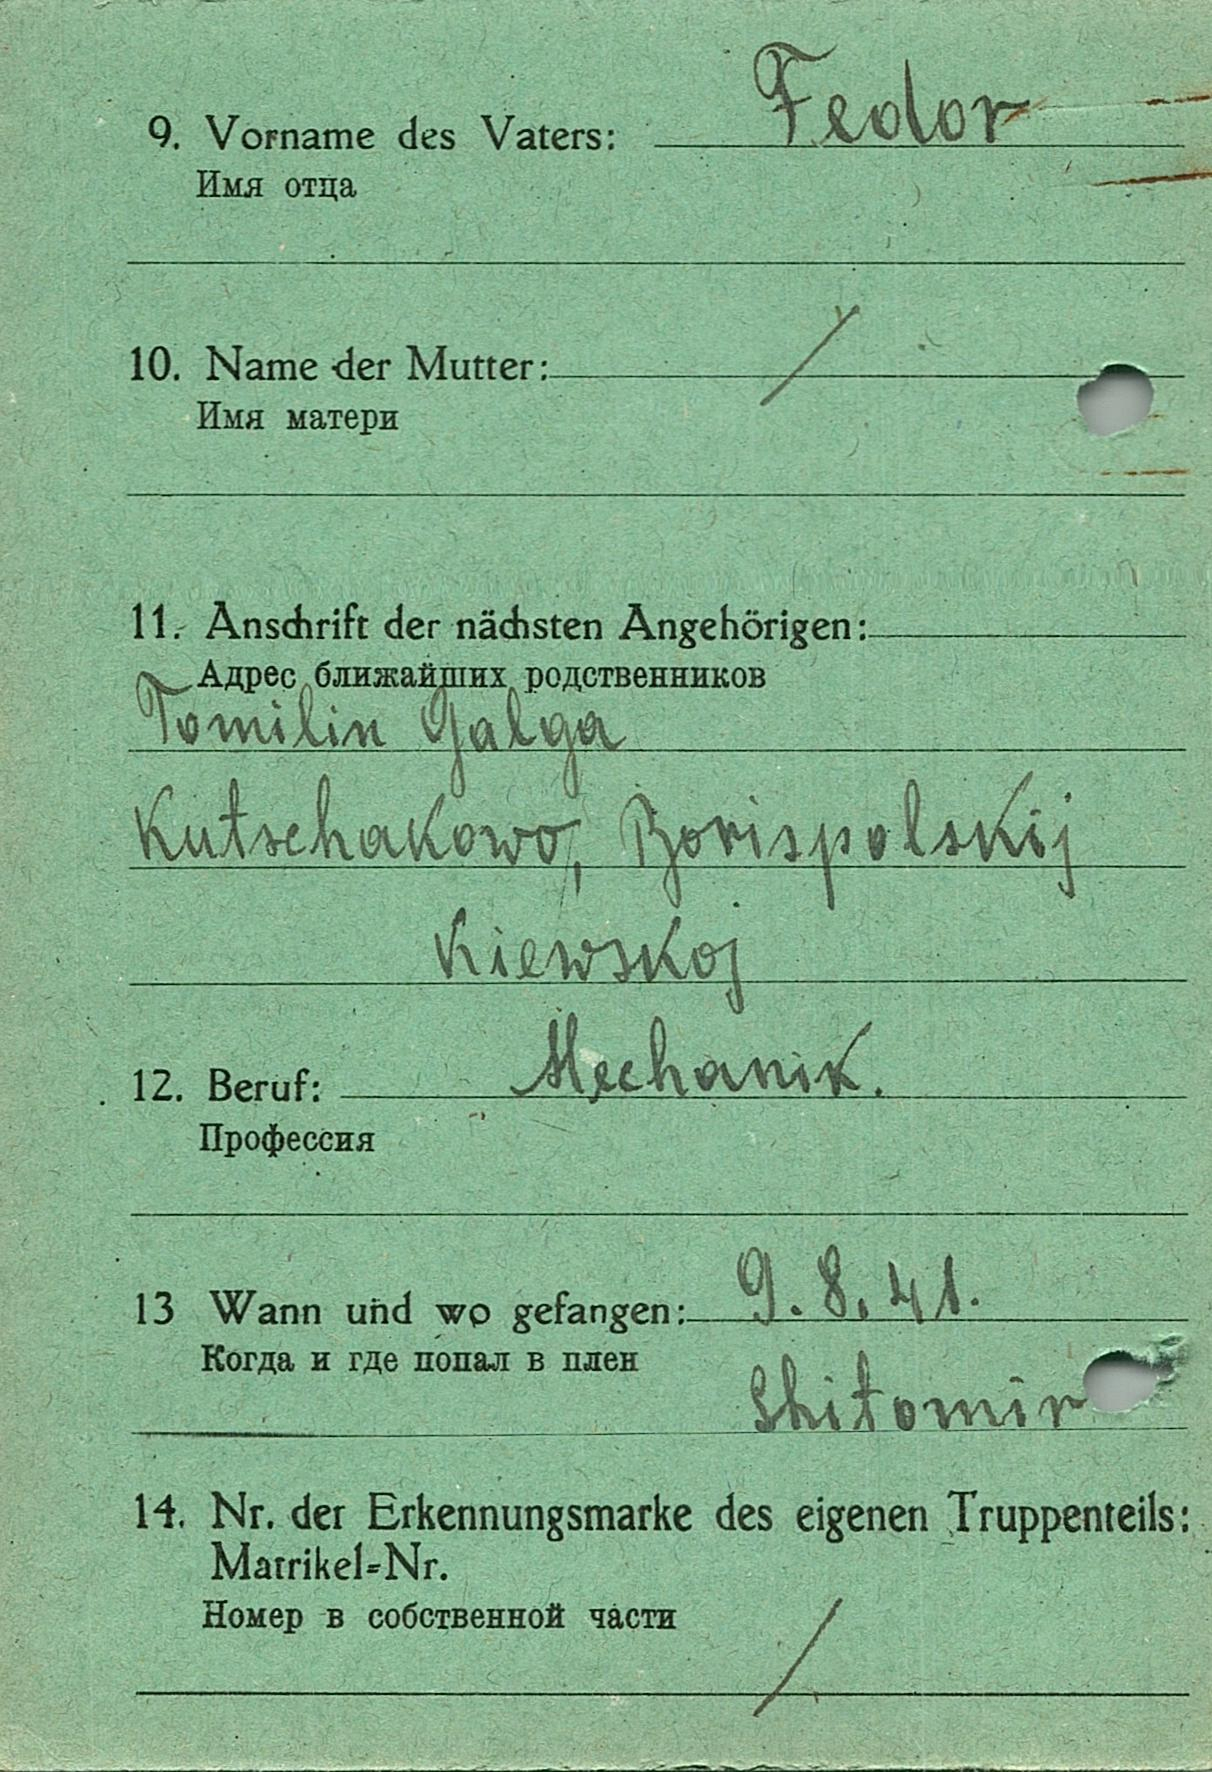 9. Vorname des Vaters: Fedor
Имя отца
10. Name der Mutter: /
Имя матери
11. Anschrift der nächsten Angehörigen:
Адрес ближайших родственников
Tomilin Galga
Kutschakowo, Borispolskij
Kiewskoj
12. Beruf: Mechanik.
Профессия
13 Wann und wo gefangen: 9.8.41.
Когда и где попал в плен
Shitomir
14. Nr. der Erkennungsmarke des eigenen Truppenteils:
Matrikel-Nr.
Номер в собственной части
/